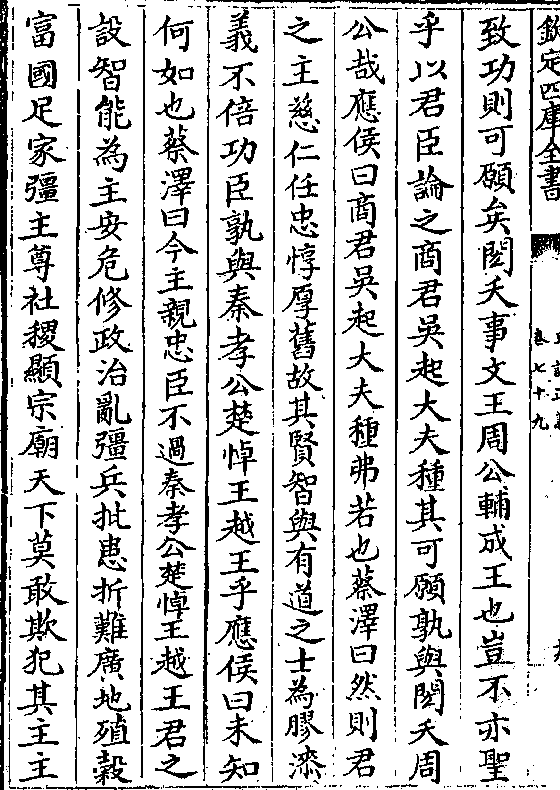 欽定四庫全書
卷七十九
致功則可願矣閎夭事文王周公輔成王也豈不亦聖
乎以君臣論之商君吳起大夫種其可願孰與閎夭周
公哉應侯曰商君吳起大夫種弗若也蔡澤曰然則君
之主慈仁任忠惇厚舊故其賢智與有道之士為膠漆
義不倍功臣孰與秦孝公楚悼王越王乎應侯曰未知
何如也蔡澤曰今主親忠臣不過秦孝公楚悼王越王君之
設智能為主安危修政治亂彊兵批患折難廣地殖穀
富國足家彊主尊社稷顯宗廟天下莫敢欺犯其主主